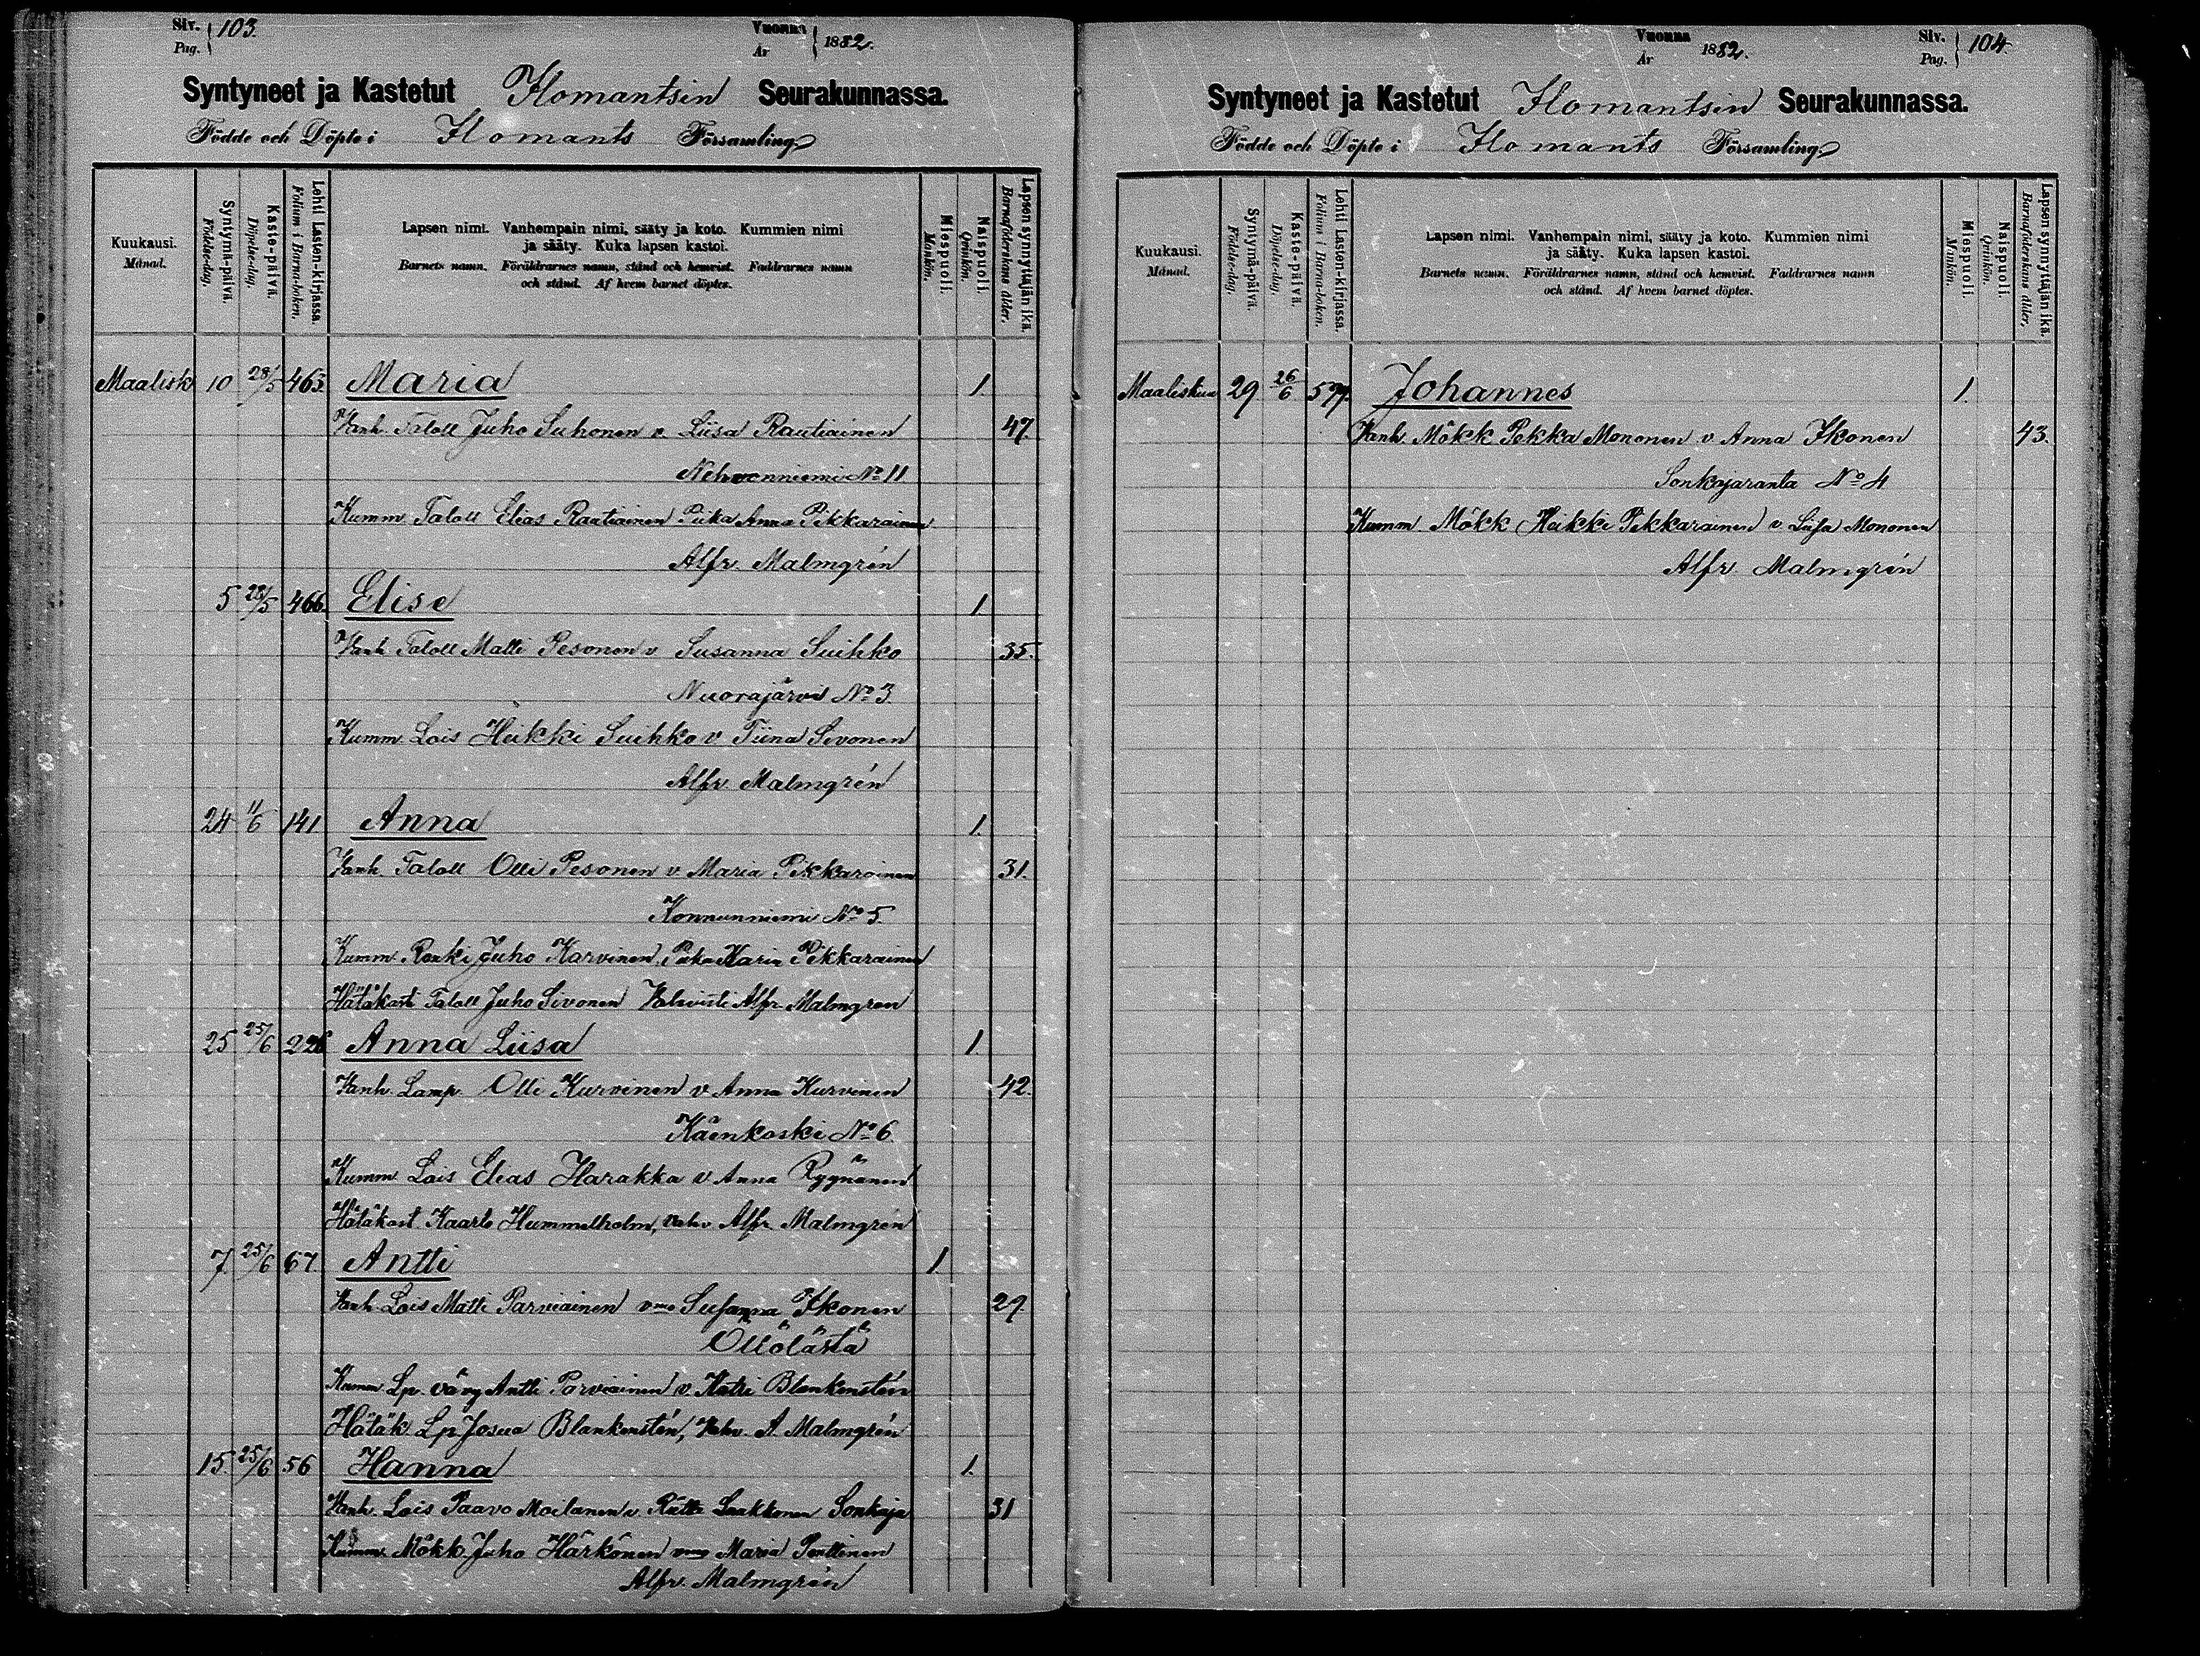 Siv. Pag. 103.
Vuonna År 1882.
Syntyneet ja Kastetut Ilomantsin Seurakunnassa.
Födde och Döpte i Ilomants Församling
Kuukausi. Månad.
Syntymä-päivä. Födelse-dag.
Kaste-päivä. Döpelse-dag.
Lehti Lasten-kirjassa. Folium i Barna-boken.
Lapsen nimi. Vanhempain nimi, sääty ja koto. Kummien nimi
ja sääty. Kuka lapsen kastoi.
Barnets namn. Föräldrarnes namn, stånd och hemvist. Faddrarnes namn
och stånd. Af hvem barnet döptes.
Miespuoli. Mankön.
Naispuoli. Qvinkön.
Lapsen synnyttäjän ikä. Barnaföderskans ålder.
Maalisk 10 28/5 463 Maria 1.
Vanh. Taloll Juho Suhonen v. Liisa Rautiainen 47.
Nehvonniemi No 11
Kumm. Taloll Elias Rautiainen Piika Anna Pikkarainen
Alfr. Malmgrén
5 28/5 466. Elise 1.
Vanh Taloll Matti Pesonen v Susanna Suihko 35.
Nuorajärvi No 3.
Kumm. Lois Heikki Suihko v. Tiina Sivonen
Alfr. Malmgrén
24 11/6 141 Anna 1.
Vanh. Taloll Olli Pesonen v. Maria Pikkarainen 31.
Konnunniemi No 5.
Kumm. Renki Juho Karvinen. Piika Karin Pikkarainen
Hätäkasti Taloll Juho Sivonen Vahvisti Alfr. Malmgren
25 25/6 226 Anna Liisa 1.
Vanh. Lamp. Olli Kurvinen v Anna Kurvinen 42.
Käenkoski No 6.
Kumm Lois Elias Harakka v Anna Ryynänen
Hätäkast Kaarlo Hummelholm, vahv Alfr. Malmgrén
7. 25/6 67. Antti 1.
Vanh. Lois Matti Parviainen vmo Susanna Ikonen 29.
Ollölästä
Kumm Lp. vävy Antti Parviainen v. Katri Blankenstén
Hätäk Lp Josua Blankenstén, Vahv. A. Malmgrén
15. 25/6 56 Hanna 1.
Vanh. Lois Paavo Moilanen v. Riitta Laakkonen Sonkaja 31
Kumm. Mökk. Juho Härkönen vmo Maria Penttinen
Alfr. Malmgrén
Vuonna År 1882.
Siv. Pag. 104.
Syntyneet ja Kastetut Ilomantsin Seurakunnassa.
Födde och Döpte i Ilomants Församling.
Kuukausi. Månad.
Syntymä-päivä. Födelse-dag.
Kaste-päivä. Döpelse-dag.
Lehti Lasten-kirjassa. Folium i Barna-boken.
Lapsen nimi. Vanhempain nimi, sääty ja koto. Kummien nimi
ja sääty. Kuka lapsen kastoi.
Barnets namn. Föräldrarnes namn, stånd och hemvist. Faddrarnes namn
och stånd. Af hvem barnet döptes.
Miespuoli. Mankön.
Naispuoli. Qvinkön.
Lapsen synnyttäjän ikä. Barnaföderskans ålder.
Maaliskuu 29 26/6 579. Johannes 1.
Vanh. Mökk Pekka Mononen v Anna Ikonen 43.
Sonkajaranta No 4
Kumm Mökk Heikki Pikkarainen v Liisa Mononen
Alfr. Malmgrén